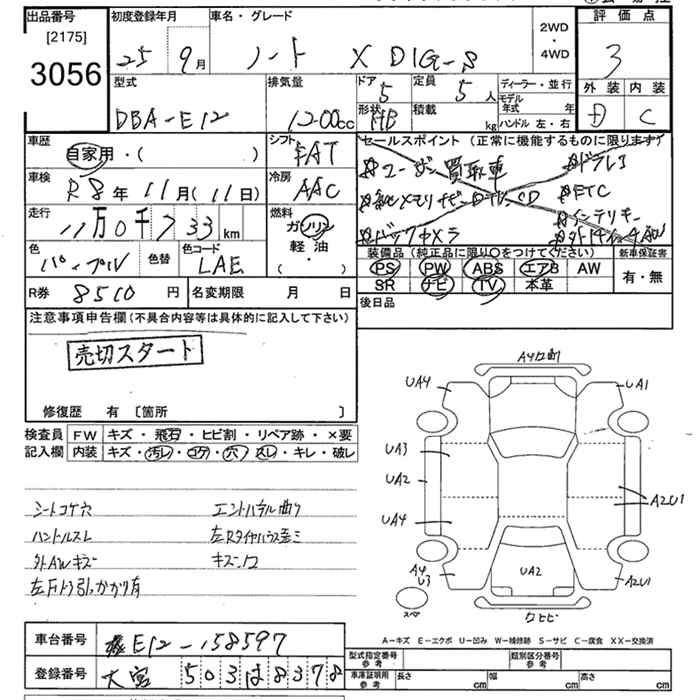 出品番号 初度登録年月 車名・グレード 2WD・4WD 評価点
[2175]
3056 25 9月 ノート X DIG-S 3
型式 排気量 ドア 5 定員 5人 ディーラー・並行 外装 内装
DBA-E12 1200cc 形状 HB 積載 kg モデル年式 年 ハンドル 左・右 D C
車歴 シフト セールスポイント (正常に機能するものに限ります)
自家用・( ) FAT ユーザー買取車 ドラレコ
車検 R8年11月(11日) 冷房 AAC 純メモリナビ ETC
走行 11万0千733km 燃料 ガソリン インテリキー
軽油 バックカメラ
( ) 装備品 (純正品に限り○をつけてください) 新車保証書
色 パープル 色替 色コード LAE PS PW ABS エアB AW 有・無
SR ナビ TV 本革
R券 8510円 名変期限 月 日 後日品
注意事項申告欄(不具合内容等は具体的に記入して下さい)
売切スタート
修復歴 有 〔箇所 〕
検査員 FW キズ・飛石・ヒビ割・リペア跡・×要
記入欄 内装 キズ・汚レ・コゲ・穴・スレ・キレ・破レ
シートコゲ穴 エントパネル曲り
ハンドルスレ
外AWキズ
A4 UA4 UA1
UA3
UA2
UA4 A2U1
A4 U3 UA2 A2U1
スペア
A-キズ E-エクボ U-凹み W-補修跡 S-サビ C-腐食 XX-交換済
車台番号 E12-158597
登録番号 大宮 503は8378
型式指定番号 参考 類別区分番号 参考
車庫証明用 参考 長さ cm 幅 cm 高さ cm